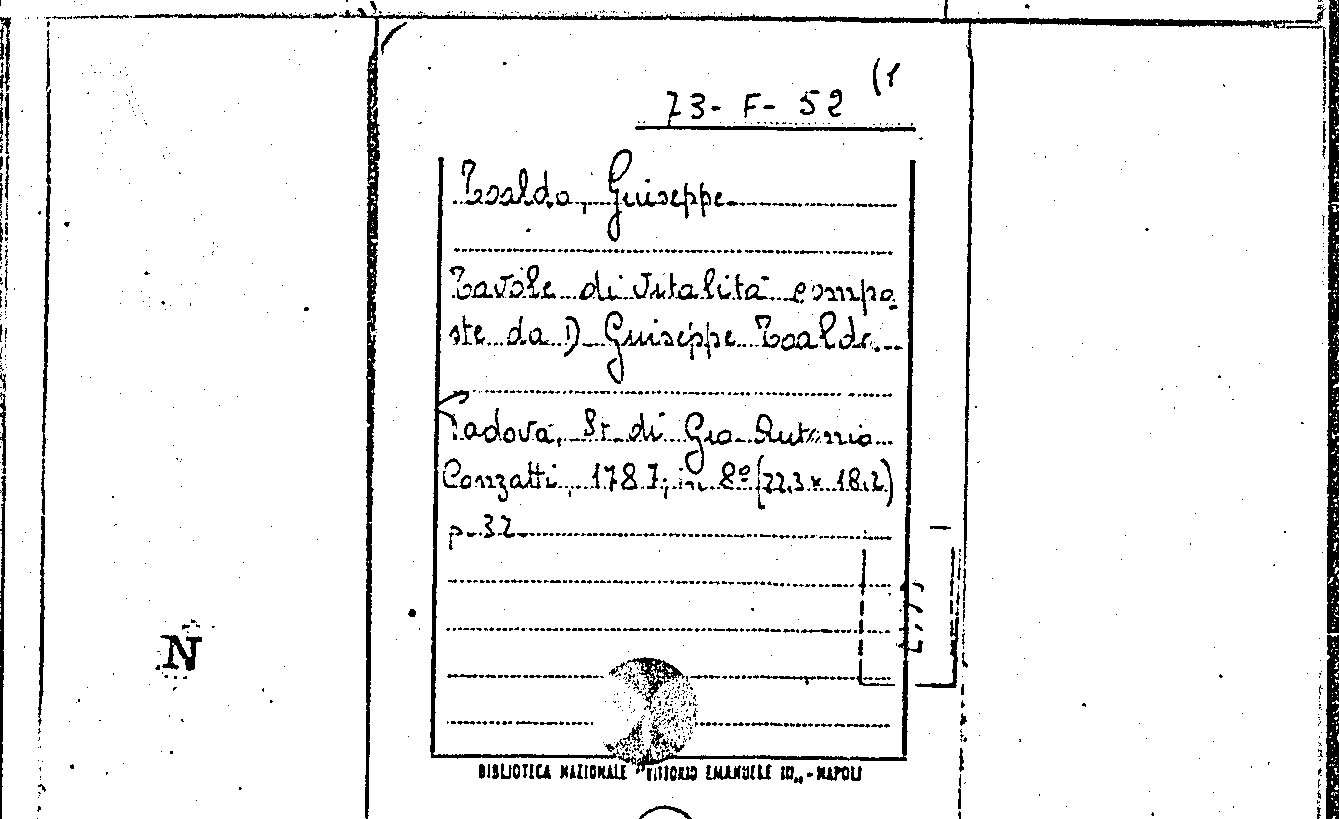 73-F-52 (1
Toaldo, Giuseppe
Tavole di vitalità compo-
ste da D Giuseppe Toaldo.
Padova, St. di Gio. Antonio
Conzatti, 1787, in 8º (22,3 x 18,2)
p. 32
N
BIBLIOTECA NAZIONALE "VITTORIO EMANUELE III„ - NAPOLI